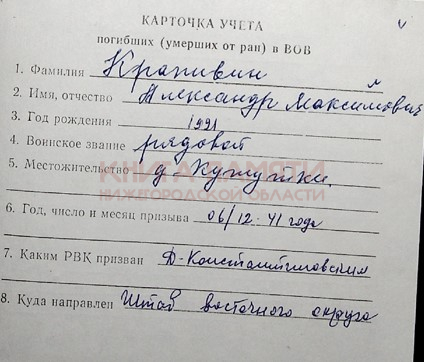 КАРТОЧКА УЧЕТА
погибших (умерших от ран) в ВОВ
1. Фамилия Крапивин
2. Имя, отчество Александр Максимович
3. Год рождения 1921
4. Воинское звание рядовой
5. Местожительство д-
КНИГА ПАМЯТИ
НИЖЕГОРОДСКОЙ ОБЛАСТИ
6. Год, число и месяц призыва 06/12-41 года
7. Каким РВК призван Д-Константиновским
8. Куда направлен Штаб восточного округа